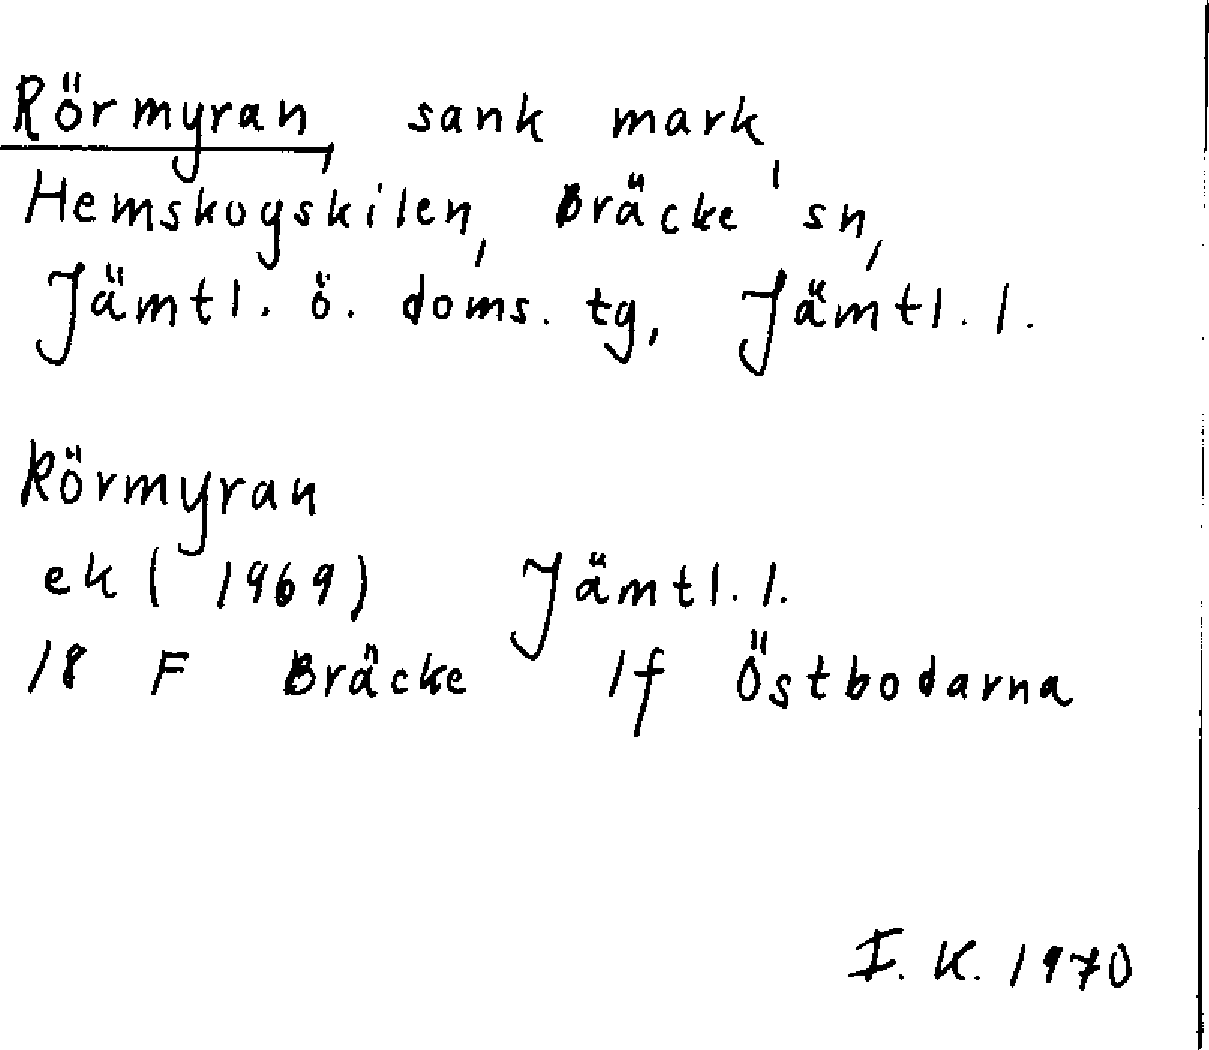 Rörmyran, sank mark,
Hemskogskilen, Bräcke sn,
Jämtl. ö. doms. tg, Jämtl. l.
Rörmyran
ek (1969) Jämtl. l.
18 F Bräcke 1f Östbodarna
I. K. 1970